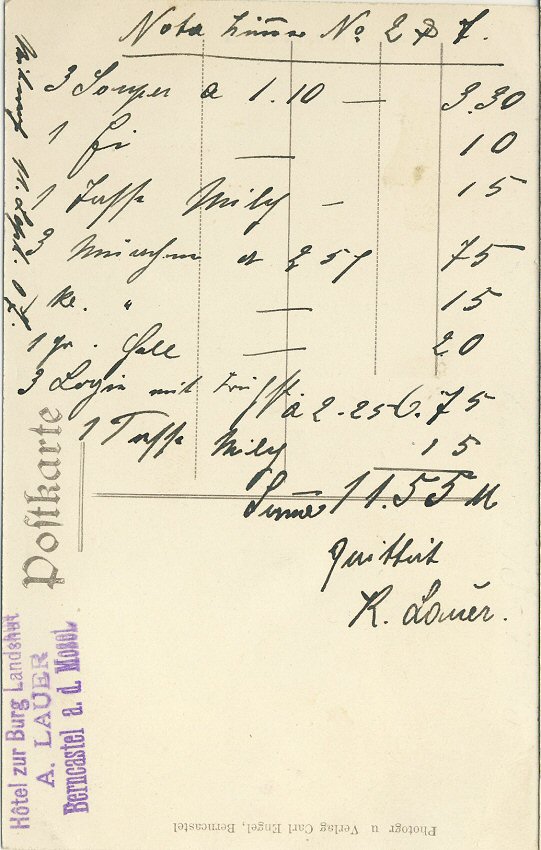 Nota Zimmer No 2 & 7.
3 Souper a 1.10 — 3.30
1 Ei — 10
1 Tasse Milch — 15
3 Münchner a 25 75
1 kl. " — 15
1 gr. Hell — 20
3 Logis mit Frühst. à 2.25 6.75
1 Tasse Milch 15
Summe 11.55 M
Quittirt
K. Lauer.
11. Sept. 07.
Postkarte
Hôtel zur Burg Landshut
A. LAUER
Berncastel a. d. Mosel.
Photogr u Verlag Carl Engel, Berncastel